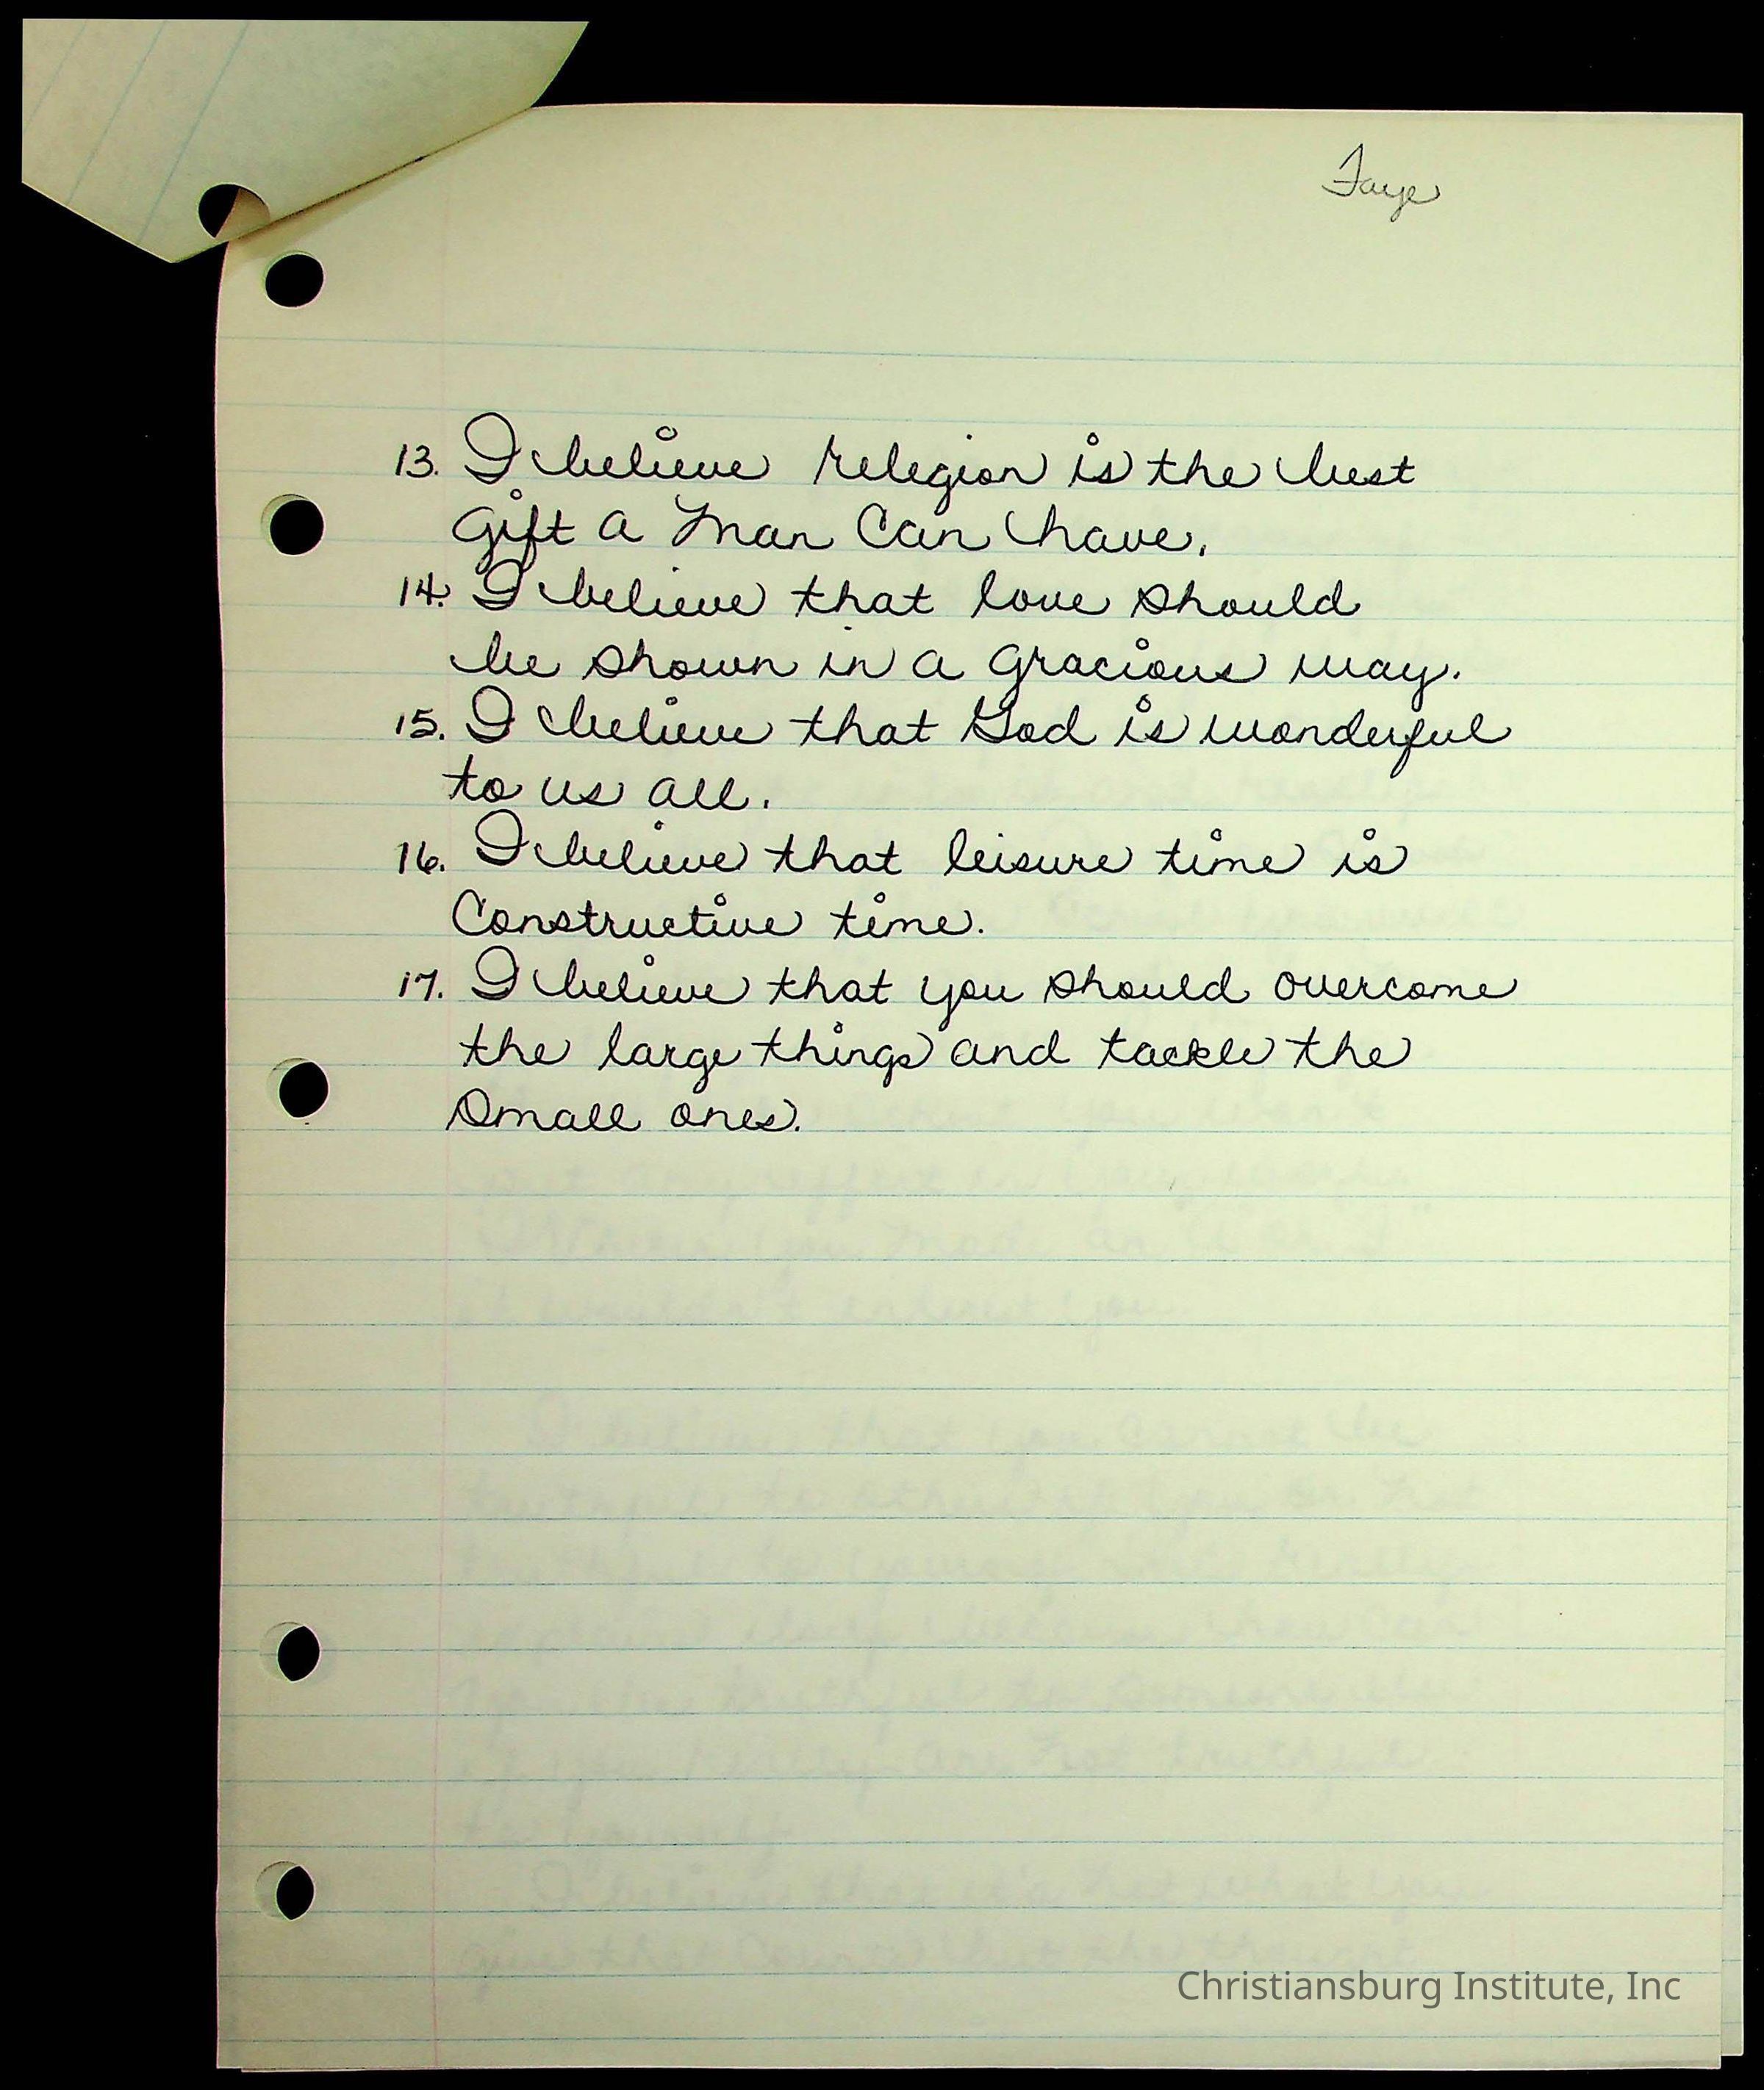 Faye
13. I believe relegion is the best
gift a man can have.
14. I believe that love should
be shown in a gracious way.
15. I believe that God is wonderful
to us all.
16. I believe that leisure time is
Constructive time.
17. I believe that you should overcome
the large things and tackle the
small ones.
Christiansburg Institute, Inc